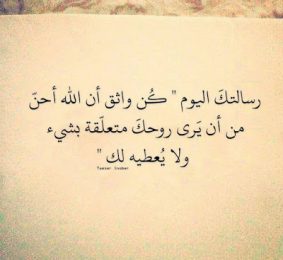 رسالتكَ اليوم " كُن واثق أن الله أحنّ
من أن يَرى روحكَ متعلّقة بشيء
ولا يُعطيه لك "